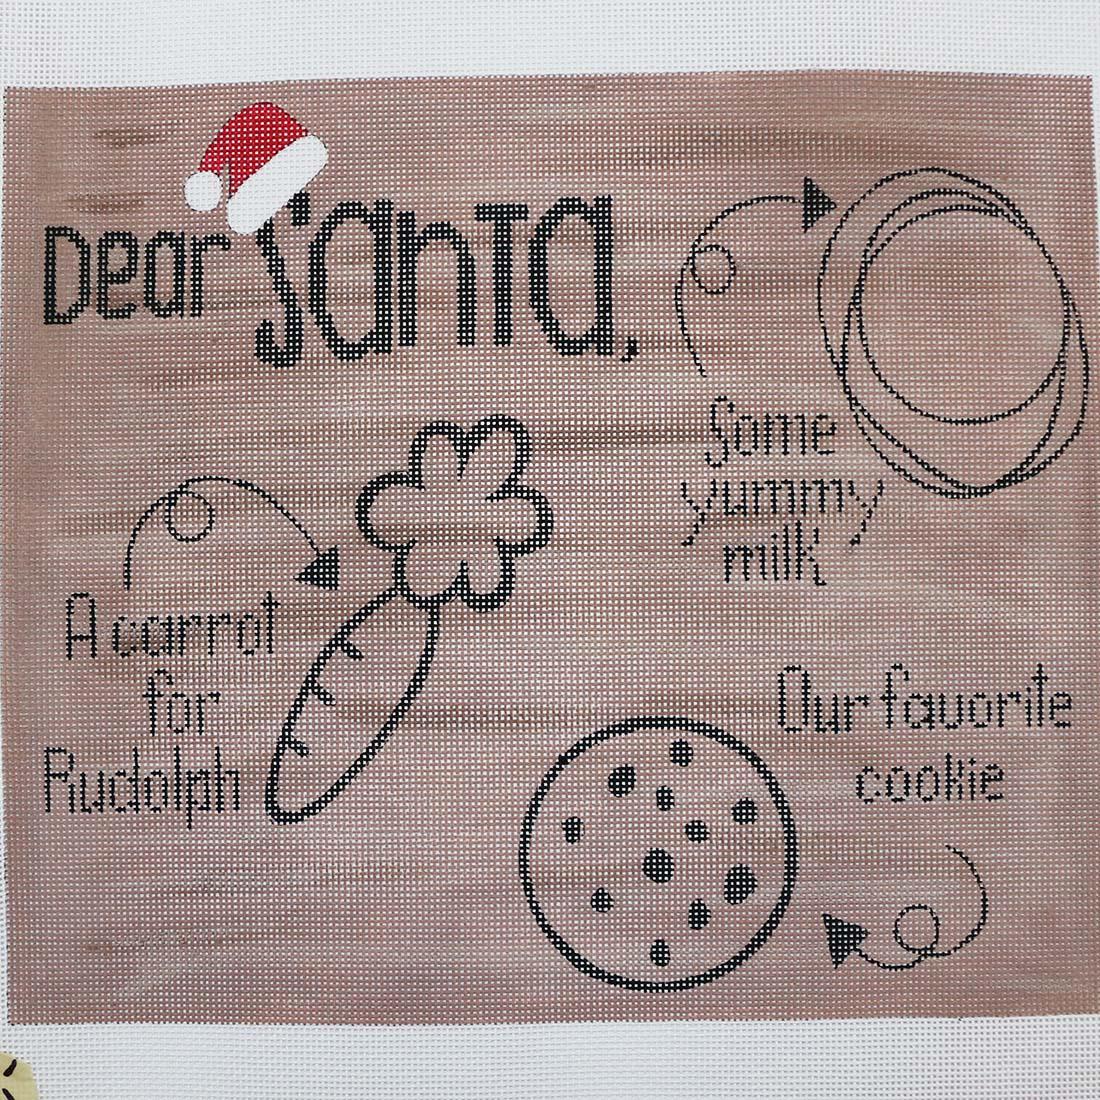 Dear Santa,
Some
yummy
milk
A carrot
for
Rudolph
Our favorite
cookie